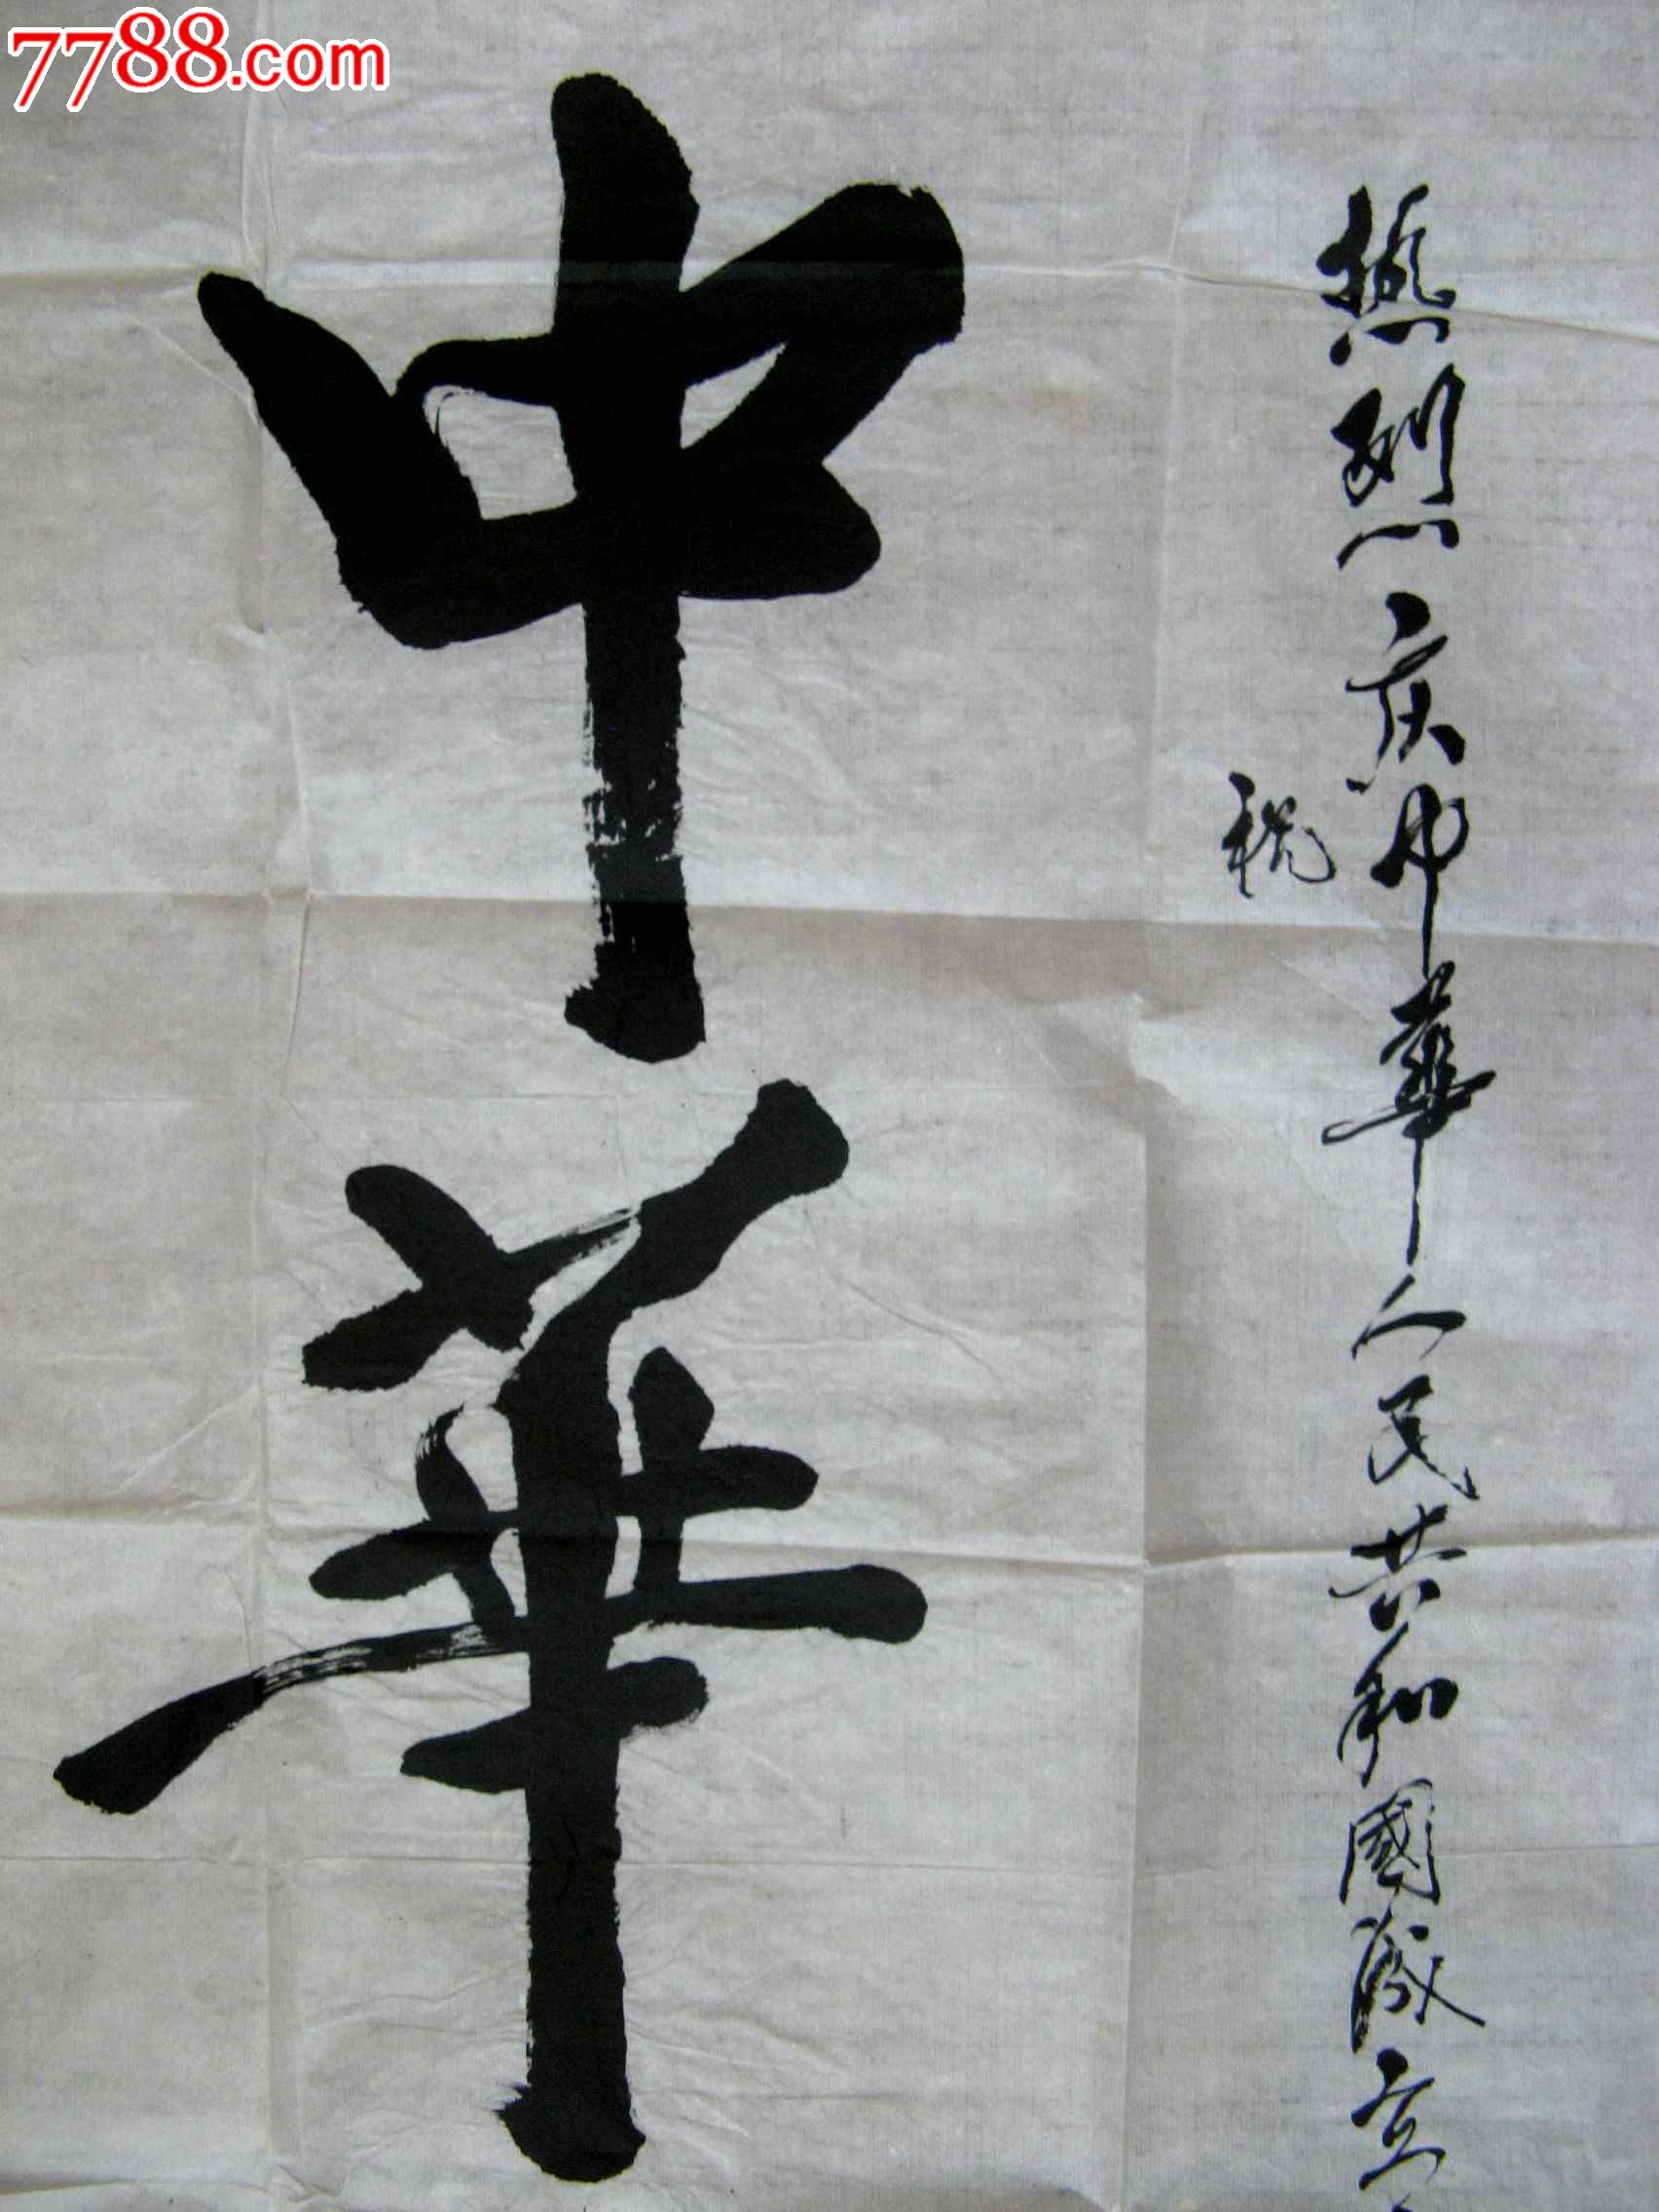 7788.com
熱烈庆中華人民共和國成立
祝
中華